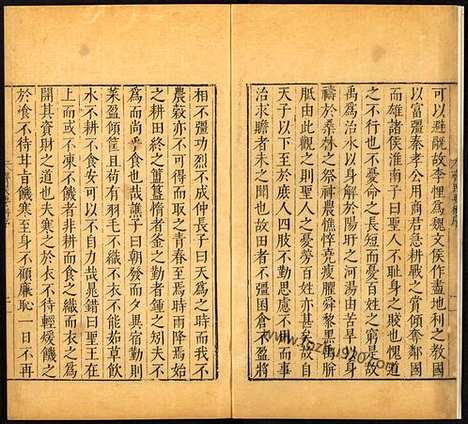 可以避飢故李悝爲魏文侯作盡地利之教國
以富彊秦孝公用商君急耕戰之賞傾奪鄰國
而雄諸侯淮南子曰聖人不耻身之賤也愧道
之不行也不憂命之長短而憂百姓之窮是故
禹爲治水以身解於陽盱之河湯由苦旱以身
禱於桑林之祭神農憔悴堯瘦臞舜黎黑禹胼
胝由此觀之則聖人之憂勞百姓亦甚矣故自
天子以下至於庶人四肢不勤思慮不用而事
治求贍者未之聞也故田者不彊囷倉不盈將
相不彊功烈不成仲長子曰天爲之時而我不
農穀亦不可得而取之青春至焉時雨降焉始
之耕田終之簠簋惰者釜之勤者鍾之矧夫不
爲而尚乎食也哉譙子曰朝發而夕異宿勤則
菜盈傾筐且苟有羽毛不織不衣不能茹草飲
水不耕不食安可以不自力哉晁錯曰聖王在
上而民不凍不饑者非耕而食之織而衣之爲
開其資財之道也夫寒之於衣不待輕煖饑之
於飡不待甘旨饑寒至身不顧廉恥一日不再